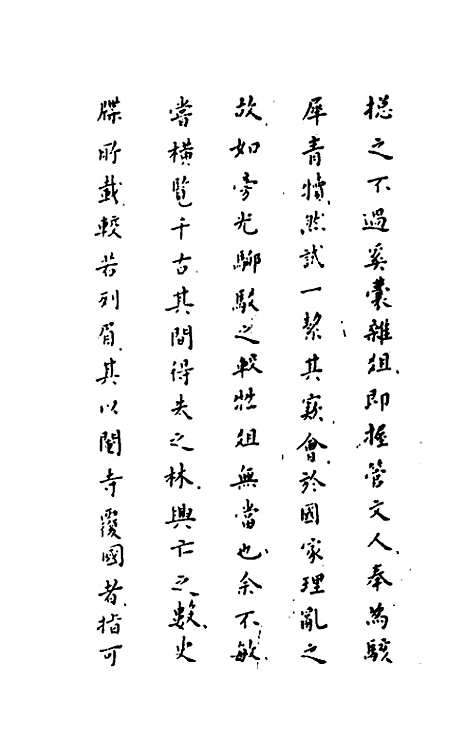 摠之不過奚囊雜俎即握管文人奉為駭
犀青犢然試一絜其窾會於國家理亂之
故如旁光駵駁之較牲俎無當也余不敏
嘗橫覽千古其間得失之林興亡之數史
牒所載較若列眉其以閹寺覆國者指可